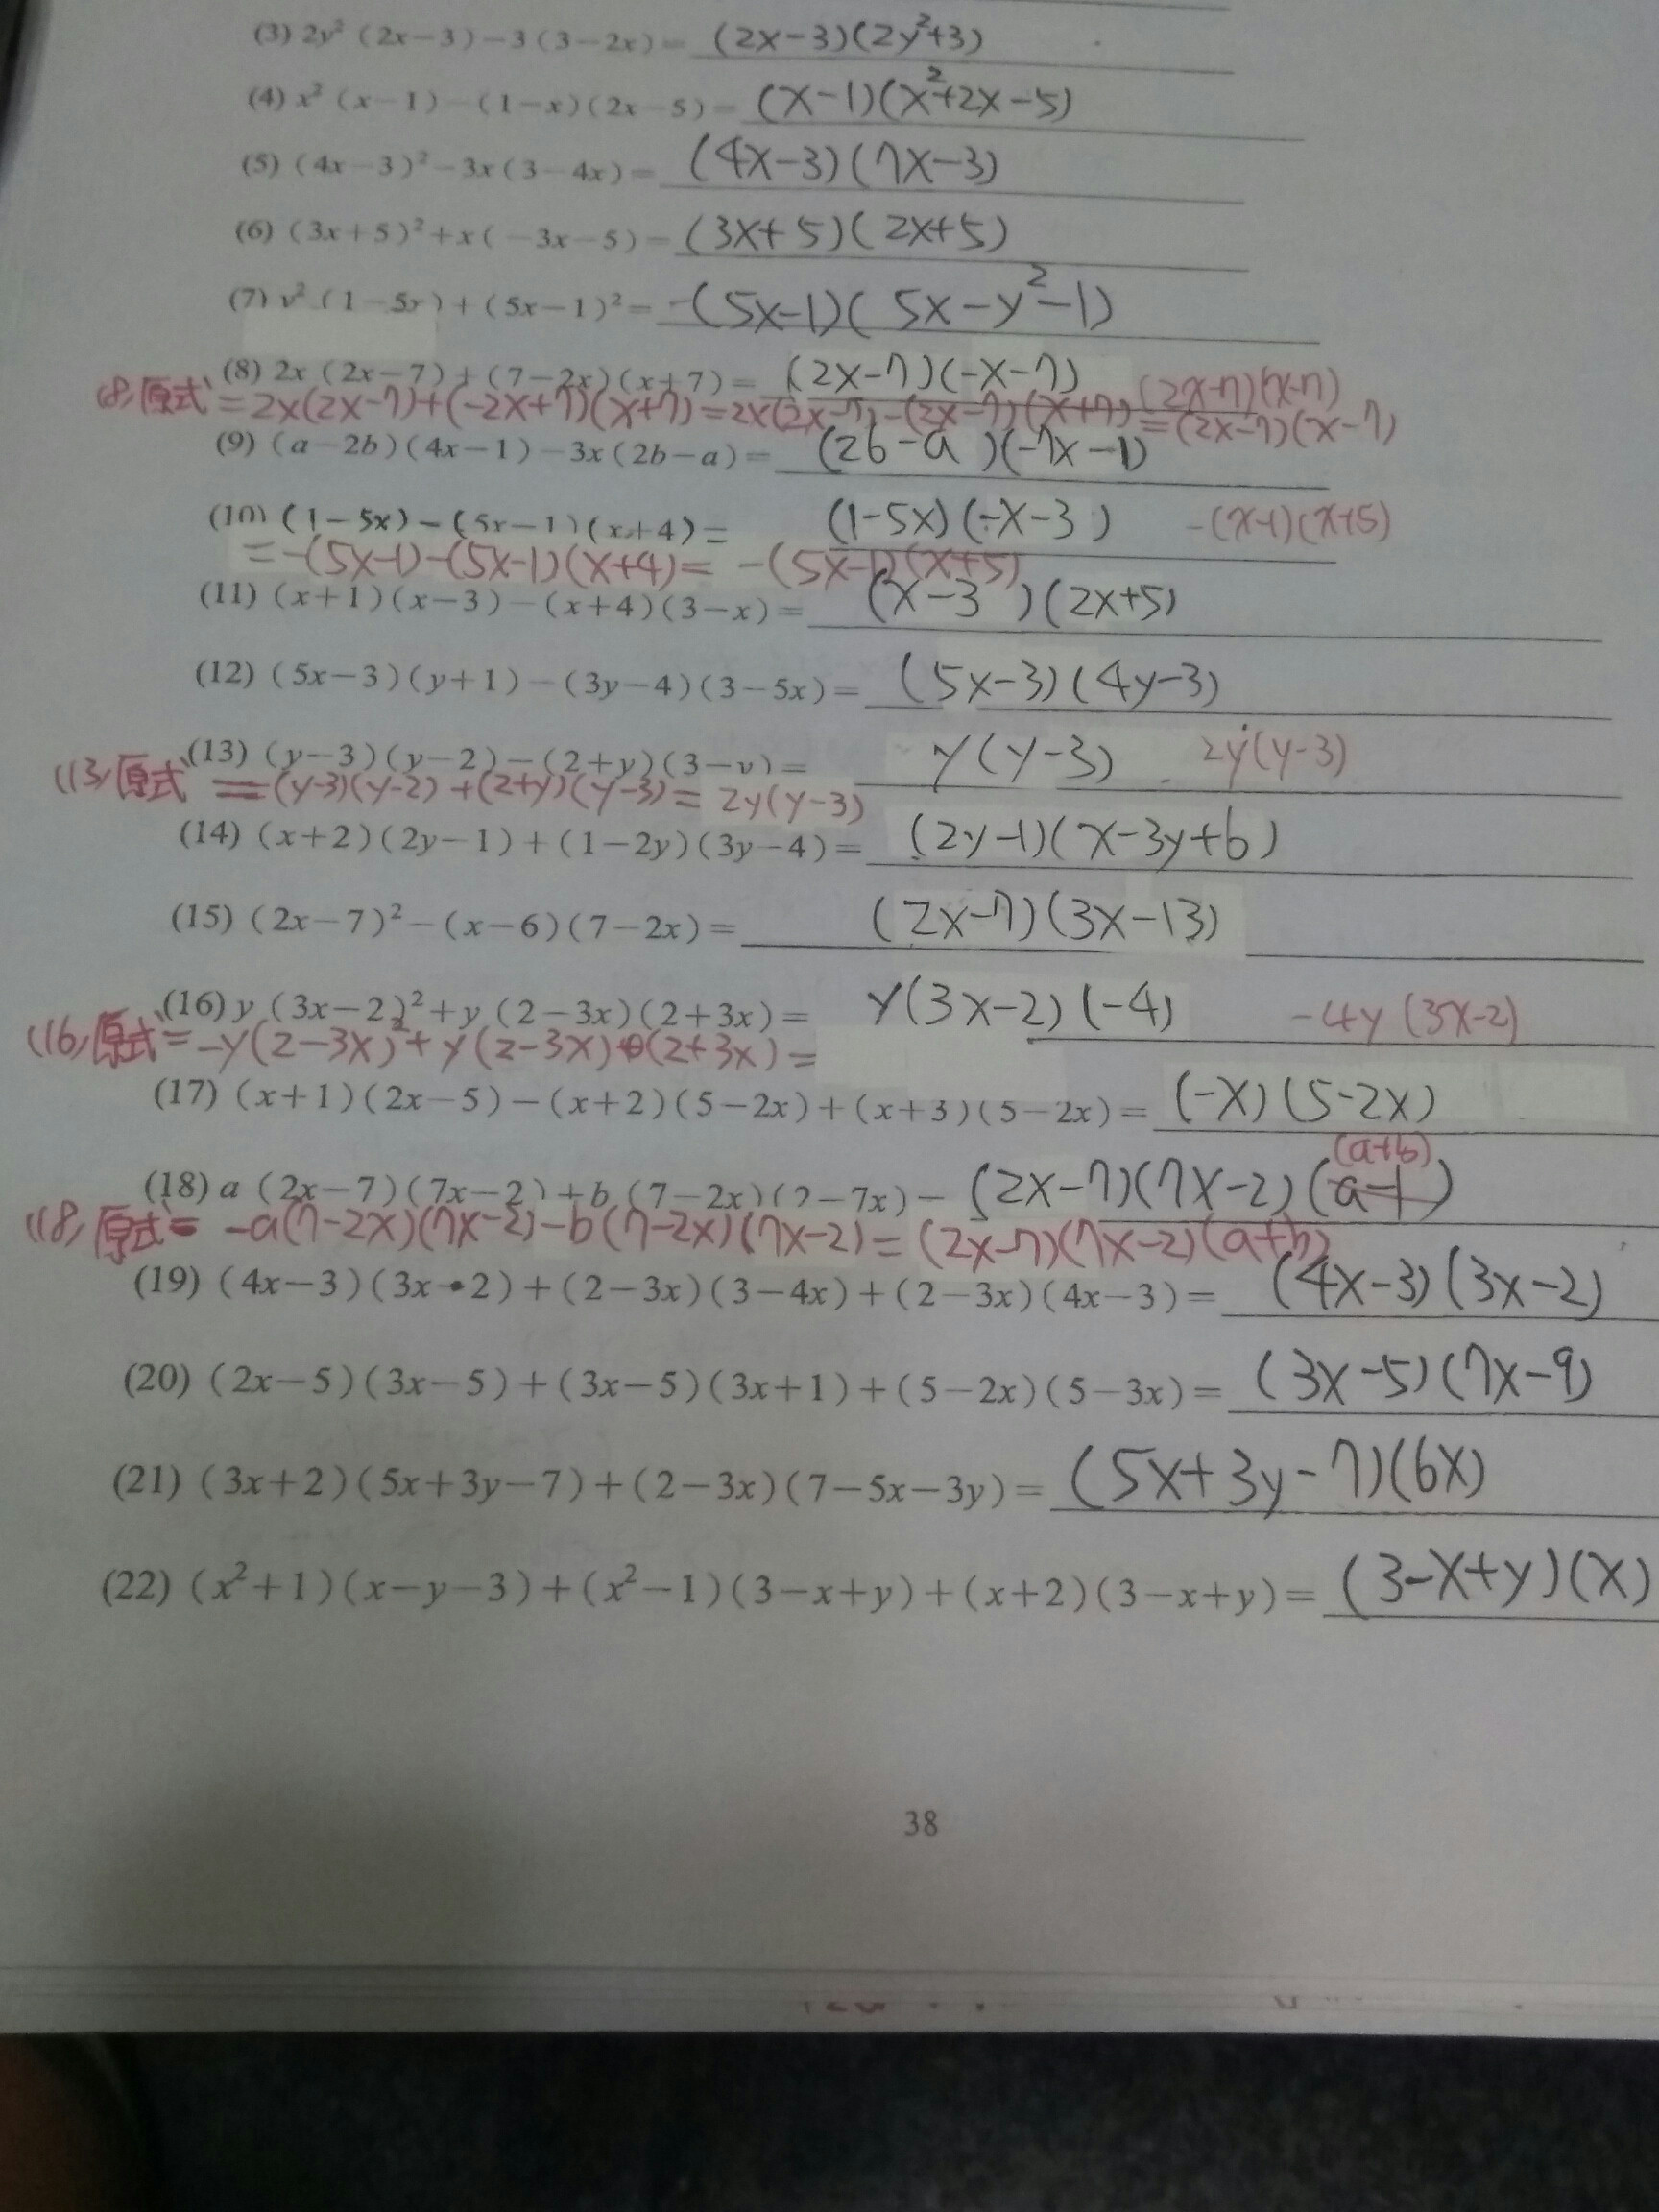 (3) 2y² (2x－3)－3(3－2x)＝ (2x－3)(2y²+3)
(4) x² (x－1)－(1－x)(2x－5)＝ (x－1)(x²+2x－5)
(5) (4x－3)²－3x(3－4x)＝ (4x－3)(7x－3)
(6) (3x＋5)²＋x(－3x－5)＝ (3x+5)(2x+5)
(7) y² (1－5x)＋(5x－1)²＝ (5x－1)(5x－y²－1)
(8) 2x (2x－7)＋(7－2x)(x＋7)＝ (2x－7)(-x－7) (2x-7)(x-7)
(8)原式＝2x(2x-7)+(-2x+7)(x+7)＝2x(2x-7)-(2x-7)(x+7)＝(2x-7)(x-7)
(9) (a－2b)(4x－1)－3x(2b－a)＝ (2b－a)(-7x－1)
(10) (1－5x)－(5x－1)(x＋4)＝ (1-5x)(-x-3) -(x-1)(x+5)
＝-(5x-1)-(5x-1)(x+4)＝ -(5x-1)(x+5)
(11) (x＋1)(x－3)－(x＋4)(3－x)＝ (x－3)(2x+5)
(12) (5x－3)(y＋1)－(3y－4)(3－5x)＝ (5x－3)(4y－3)
(13) (y－3)(y－2)－(2＋y)(3－y)＝ y(y－3) 2y(y-3)
(13)原式＝(y-3)(y-2)+(2+y)(y-3)＝2y(y-3)
(14) (x＋2)(2y－1)＋(1－2y)(3y－4)＝ (2y－1)(x－3y+6)
(15) (2x－7)²－(x－6)(7－2x)＝ (2x－7)(3x－13)
(16) y (3x－2)²＋y (2－3x)(2＋3x)＝ y(3x－2)(-4) -4y(3x-2)
(16)原式＝-y(2-3x)²+y(2-3x)(2+3x)＝
(17) (x＋1)(2x－5)－(x＋2)(5－2x)＋(x＋3)(5－2x)＝ (-x)(5-2x)
(a+b)
(18) a (2x－7)(7x－2)＋b (7－2x)(2－7x)＝ (2x－7)(7x－2)(a－1)
(18)原式＝-a(7-2x)(7x-2)-b(7-2x)(7x-2)＝(2x-7)(7x-2)(a+b)
(19) (4x－3)(3x－2)＋(2－3x)(3－4x)＋(2－3x)(4x－3)＝ (4x－3)(3x－2)
(20) (2x－5)(3x－5)＋(3x－5)(3x＋1)＋(5－2x)(5－3x)＝ (3x－5)(7x－9)
(21) (3x＋2)(5x＋3y－7)＋(2－3x)(7－5x－3y)＝ (5x+3y－7)(6x)
(22) (x²＋1)(x－y－3)＋(x²－1)(3－x＋y)＋(x＋2)(3－x＋y)＝ (3－x+y)(x)
38